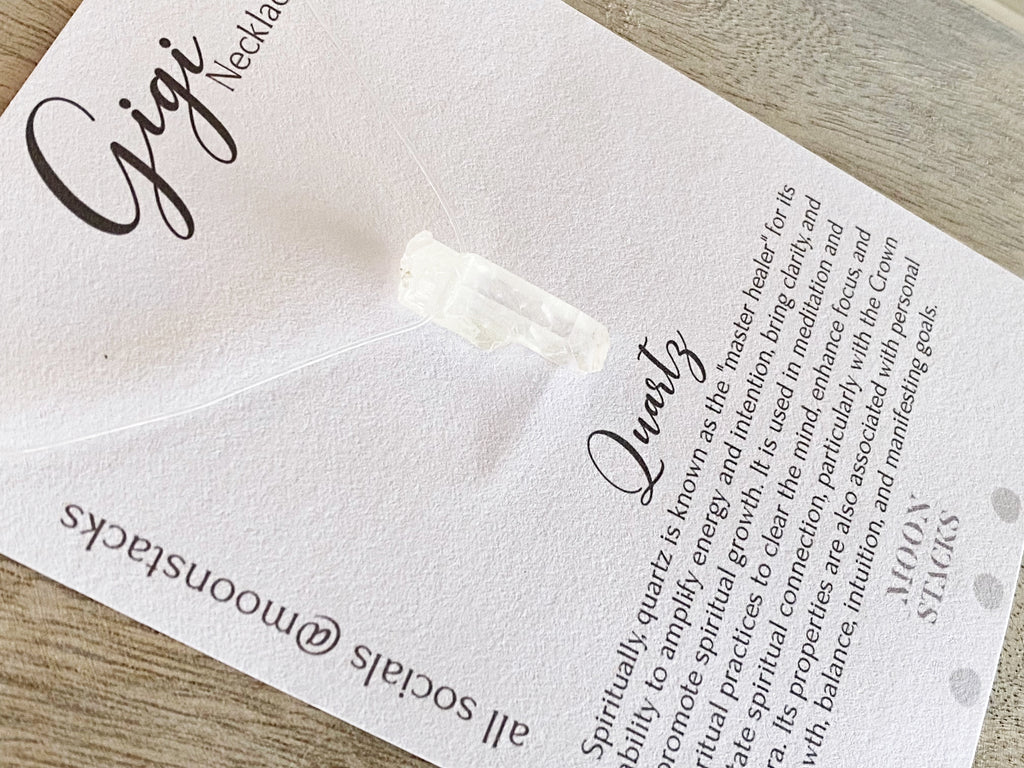 Gigi
Necklac
Quartz
Spiritually, quartz is known as the "master healer" for its
ability to amplify energy and intention, bring clarity, and
promote spiritual growth. It is used in meditation and
ritual practices to clear the mind, enhance focus, and
tate spiritual connection, particularly with the Crown
ra. Its properties are also associated with personal
wth, balance, intuition, and manifesting goals.
MOON
STACKS
all socials @moonstacks